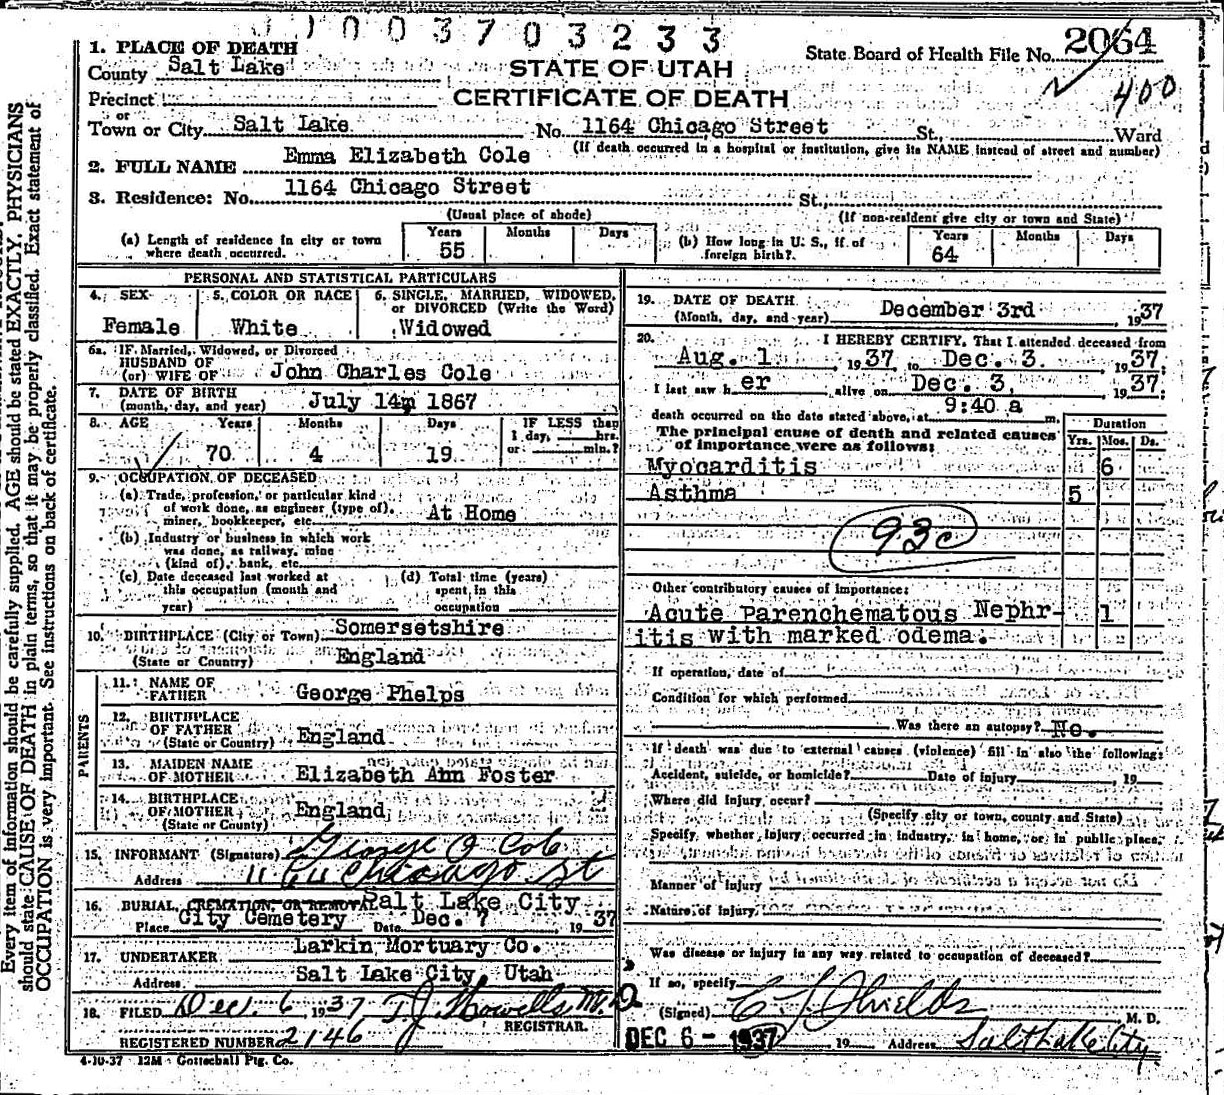 1003703233
State Board of Health File No. 2064
400
1. PLACE OF DEATH
County Salt Lake
STATE OF UTAH
CERTIFICATE OF DEATH
Precinct
or
Town or City Salt Lake No. 1164 Chicago Street St., Ward
(If death occurred in a hospital or institution, give its NAME instead of street and number)
2. FULL NAME Emma Elizabeth Cole
3. Residence: No. 1164 Chicago Street St.,
(Usual place of abode) (If non-resident give city or town and State)
(a) Length of residence in city or town where death occurred. Years 55 Months Days
(b) How long in U. S., if of foreign birth? Years 64 Months Days
PERSONAL AND STATISTICAL PARTICULARS
4. SEX Female
5. COLOR OR RACE White
6. SINGLE, MARRIED, WIDOWED, or DIVORCED (Write the Word) Widowed
6a. IF Married, Widowed, or Divorced
HUSBAND OF
(or) WIFE OF John Charles Cole
7. DATE OF BIRTH
(month, day, and year) July 14m 1867
8. AGE Years 70 Months 4 Days 19
IF LESS than 1 day, hrs. or min.?
9. OCCUPATION OF DECEASED
(a) Trade, profession, or particular kind
of work done, as engineer (type of),
miner, bookkeeper, etc. At Home
(b) Industry or business in which work
was done, as railway, mine
(kind of), bank, etc.
(c) Date deceased last worked at
this occupation (month and
year)
(d) Total time (years)
spent in this
occupation
10. BIRTHPLACE (City or Town) Somersetshire
(State or Country) England
PARENTS
11. NAME OF FATHER George Phelps
12. BIRTHPLACE OF FATHER
(State or Country) England
13. MAIDEN NAME OF MOTHER Elizabeth Ann Foster
14. BIRTHPLACE OF MOTHER
(State or Country) England
15. INFORMANT (Signature) George O Cole
Address 1164 Chicago St
16. BURIAL, CREMATION OR REMOVAL Salt Lake City
Place City Cemetery Date Dec. 7 1937
17. UNDERTAKER Larkin Mortuary Co.
Address Salt Lake City, Utah
18. FILED Dec. 6, 1937 T J Howells M.D.
REGISTRAR.
REGISTERED NUMBER 2146
4-10-37 12M Gottschall Ptg. Co.
19. DATE OF DEATH
(Month, day, and year) December 3rd, 1937
20. I HEREBY CERTIFY, That I attended deceased from
Aug. 1, 1937, to Dec. 3. 1937.
I last saw her alive on Dec. 3. 1937.
death occurred on the date stated above, at 9:40 a m.
The principal cause of death and related causes
of importance were as follows:
Duration
Yrs. Mos. Ds.
Myocarditis 6
Asthma 5
93c
Other contributory causes of importance:
Acute Parenchematous Nephr- 1
itis with marked odema.
If operation, date of
Condition for which performed
Was there an autopsy? No.
If death was due to external causes (violence) fill in also the following:
Accident, suicide, or homicide? Date of injury, 19
Where did injury occur?
(Specify city or town, county and State)
Specify whether injury occurred in industry, in home, or in public place.
Manner of injury
Nature of injury
Was disease or injury in any way related to occupation of deceased?
If so, specify
(Signed) C L Shields M. D.
DEC 6 - 1937, 19 Address Salt Lake City
Every item of information should be carefully supplied. AGE should be stated EXACTLY. PHYSICIANS
should state CAUSE OF DEATH in plain terms, so that it may be properly classified. Exact statement of
OCCUPATION is very important. See instructions on back of certificate.